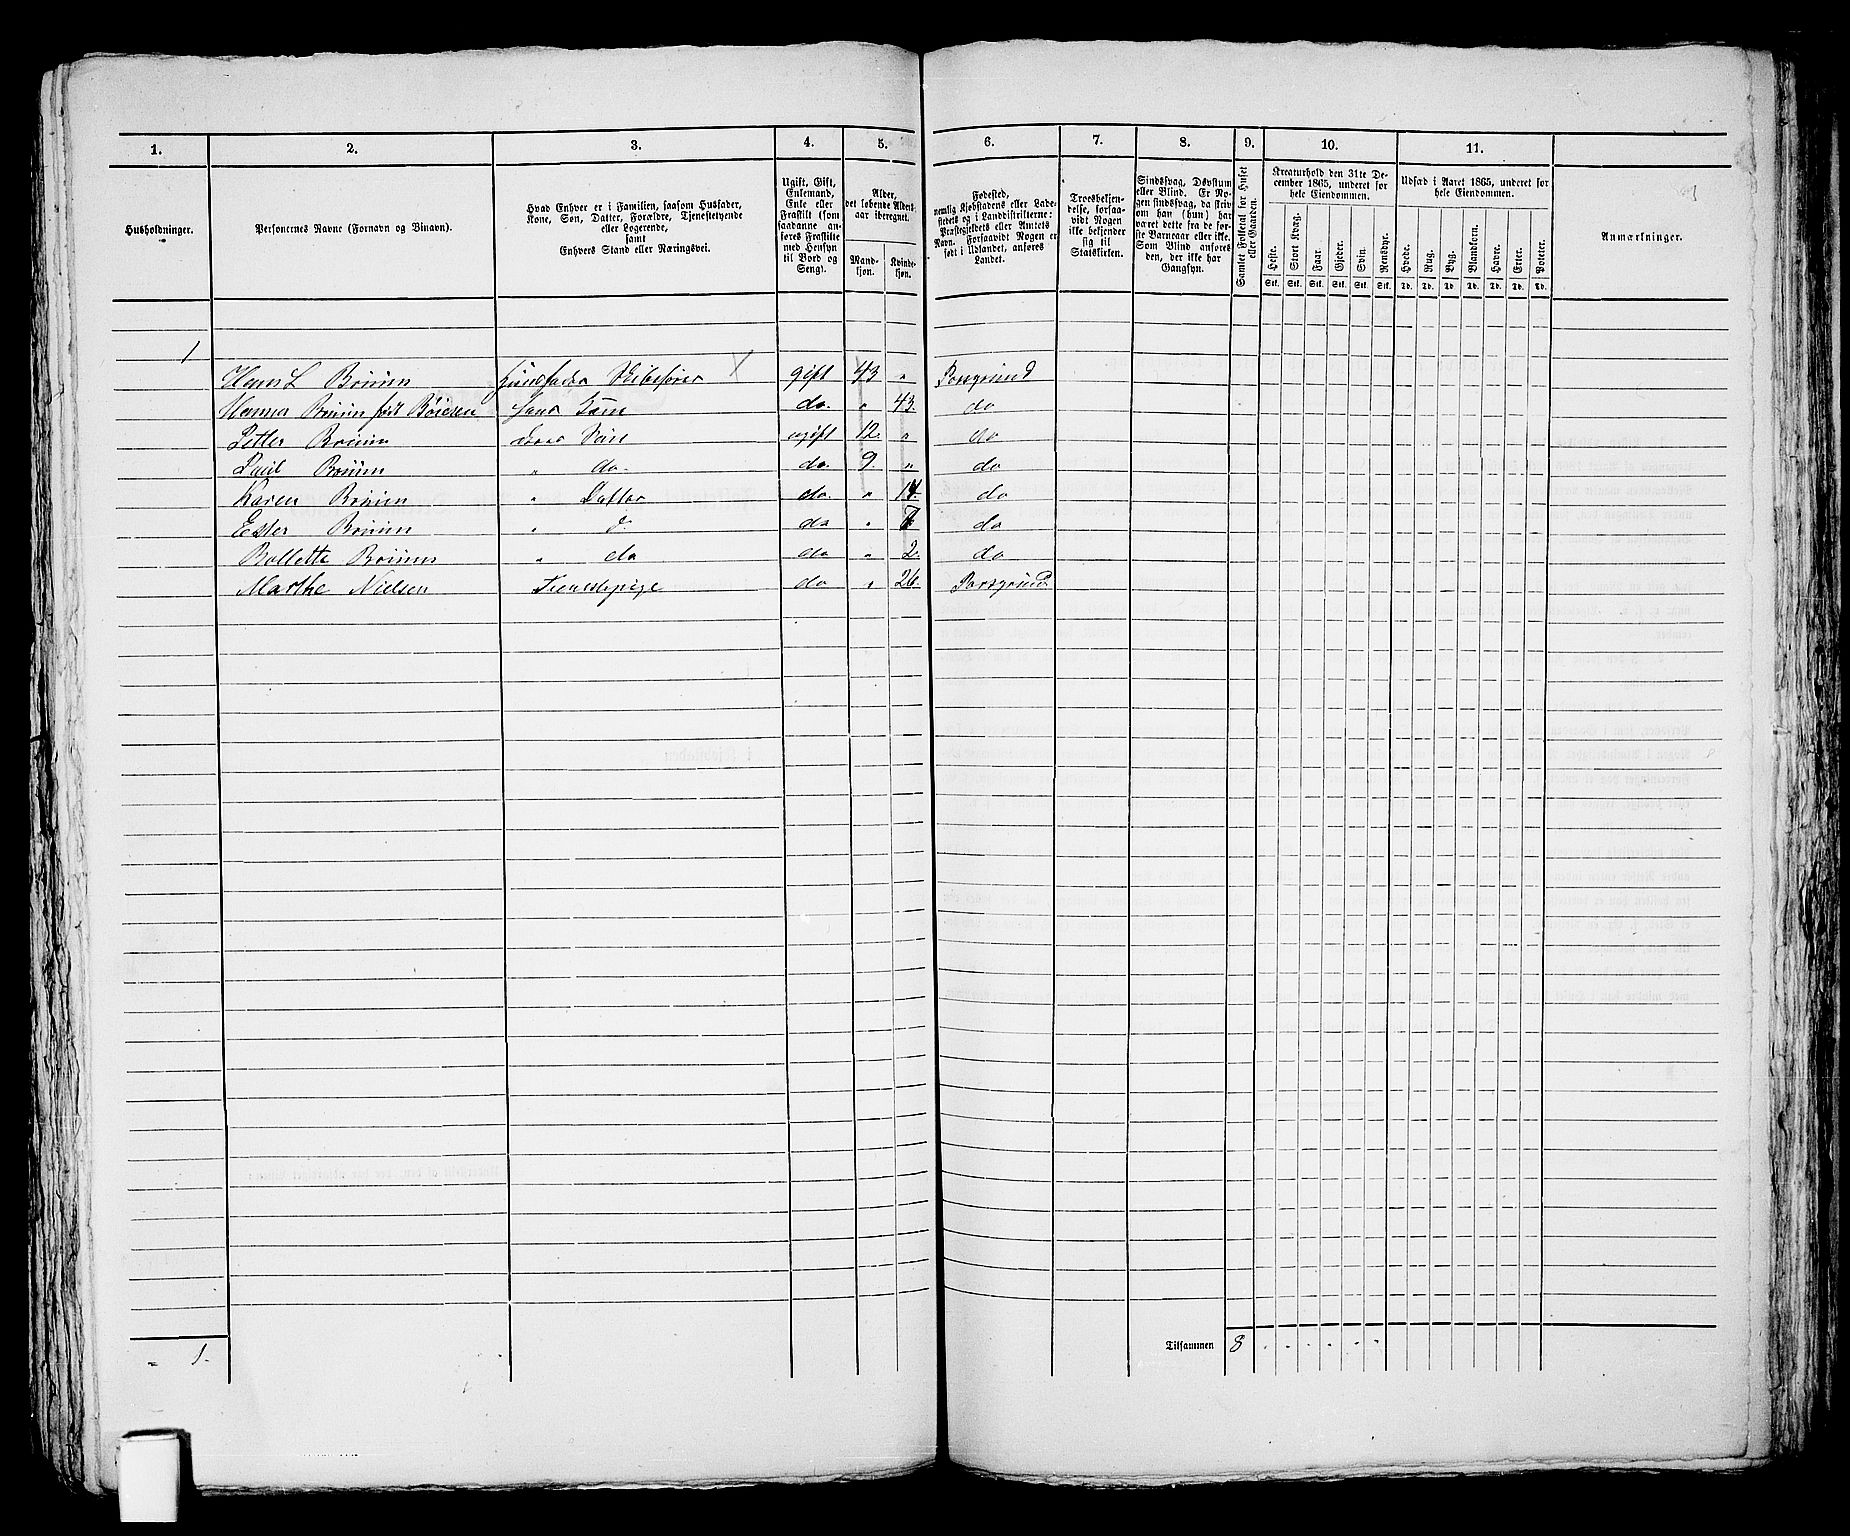 1. 2. 3. 4. 5. 6. 7. 8. 9. 10. 11.
Husholdninger.
Personernes Navne (Fornavn og Binavn).
Hvad Enhver er i Familien, saasom Husfader,
Kone, Søn, Datter, Forældre, Tjenestetyende
eller Logerende,
samt
Enhvers Stand eller Næringsvei.
Ugift, Gift,
Enkemand,
Enke eller
Fraskilt (som
saadanne an-
føres Fraskilte
med Hensyn
til Bord og
Seng).
Alder,
det løbende Alders-
aar iberegnet.
Mand-
kjøn.
Kvinde-
kjøn.
Fødested,
nemlig Kjøbstadens eller Lade-
stedets og i Landdistrikterne:
Præstegjeldets eller Amtets
Navn. Forsaavidt Nogen er
født i Udlandet, anføres
Landet.
Troesbekjen-
delse, forsaa-
vidt Nogen
ikke bekjender
sig til
Statskirken.
Sindssvag, Døvstum
eller Blind. Er No-
gen sindssvag, da skriv
om han (hun) har
været dette fra de før-
ste Barneaar eller ikke.
Som Blind anføres
den, der ikke har
Gangsyn.
Samlet Folketal for Huset
eller Gaarden.
Kreaturhold den 31te De-
cember 1865, underet for
hele Eiendommen.
Heste. Stort Kvæg. Faar. Gjeder. Svin. Rensdyr.
Stk. Stk. Stk. Stk. Stk. Stk.
Udsæd i Aaret 1865, underet for
hele Eiendommen.
Hvede. Rug. Byg. Blandkorn. Havre. Erter. Poteter.
Td. Td. Td. Td. Td. Td. Td.
Anmærkninger.
1
Hans L Bruun Huusfader Skibsfører gift 43 " Porsgrund
Hanna Bruun født Bøiesen hans Kone do. " 43. do
Petter Bruun Søn ugift 12. " do
Paul Bruun " do. do. 9. " do
Karen Bruun " Datter do. " 14. do
Ester Bruun " d. do " 7 do
Bollette Bruun " do do " 2. do
Marthe Nielsen Tjenestepige do " 26. Porsgrund
1. Tilsammen 8